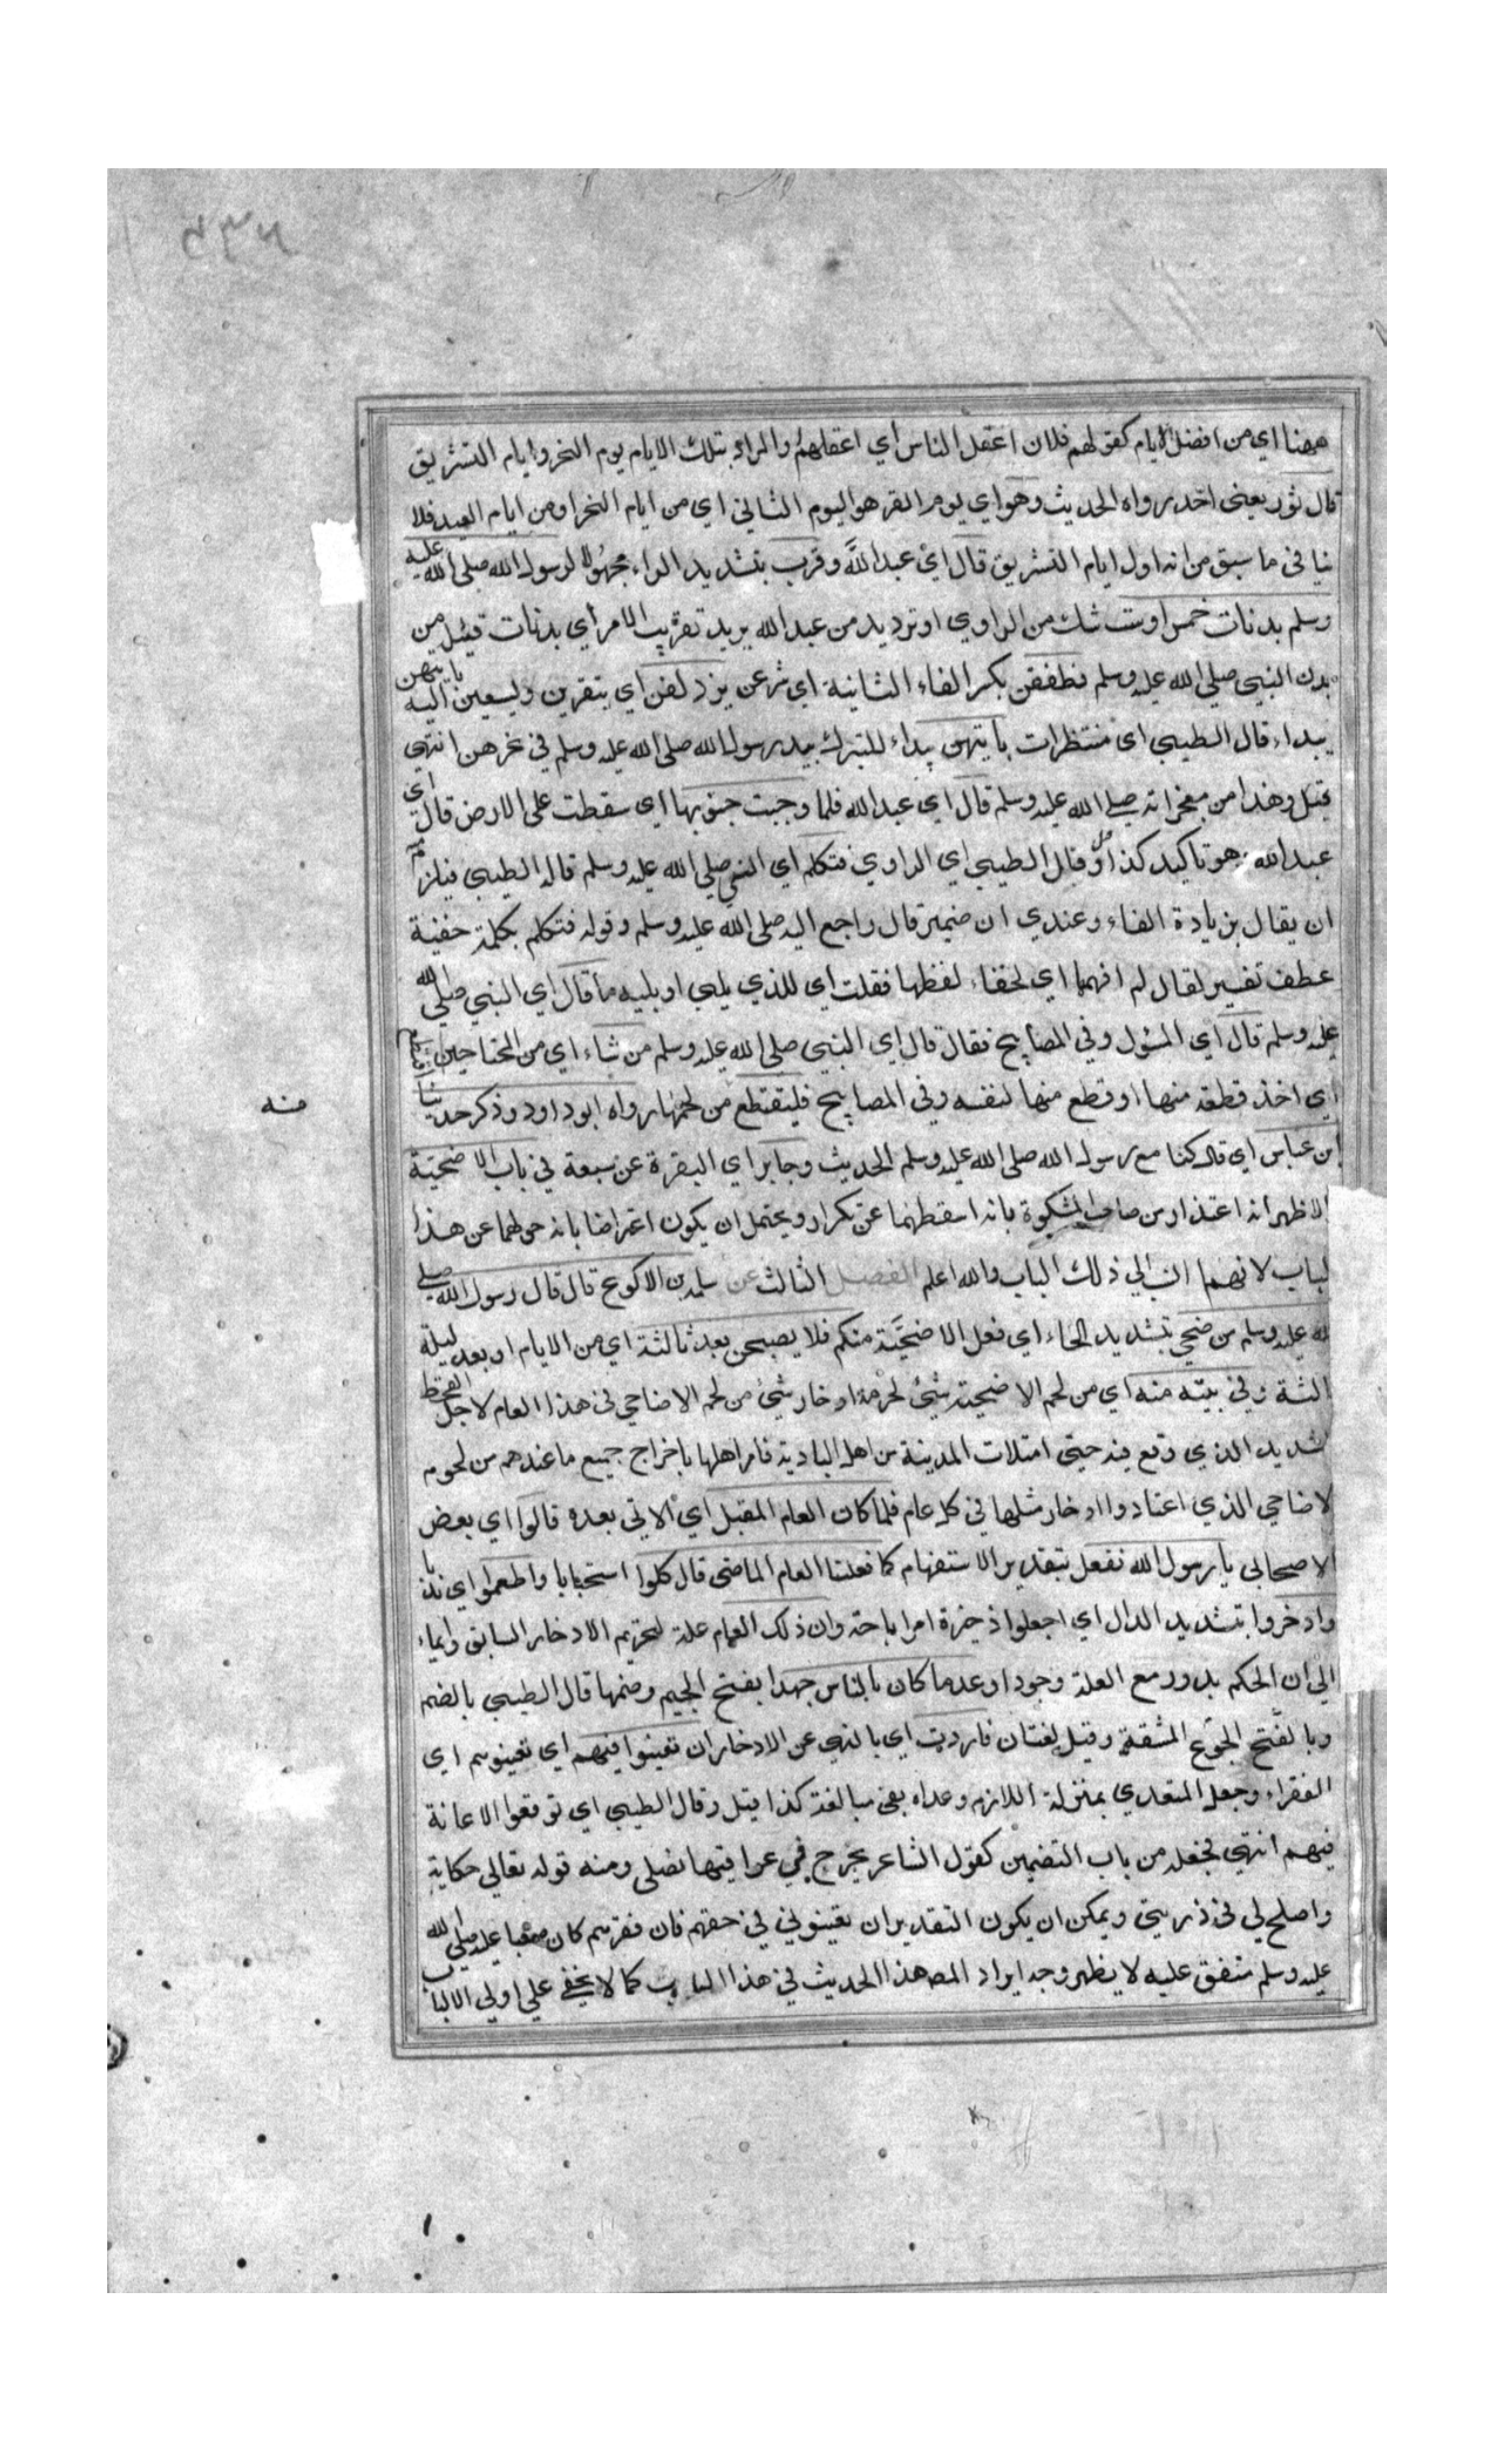 ههنا اي من افضل الايام كقولهم فلان اعقل الناس اي اعقلهم والمراد بتلك الايام يوم النحر وايام التشريق
قال ثور يعني احد رواه الحديث وهو اي يوم القر هو اليوم الثاني اي من ايام النحر او من ايام العيد فلا
ينافي ما سبق من انه اول ايام التشريق قال اي عبد الله وقرب بتشديد الراء مجهولا لرسول الله صلى الله عليه
وسلم بدنات خمس او ست شك من الراوي او ترديد من عبد الله يريد تقريب الامر اي بدنات قيل من
بدن النبي صلى الله عليه وسلم فطفقن بكسر الفاء الثانية اي شرعن يزدلفن اي يتقربن ويسعين اليه بايتهن
يبداء قال الطيبي اي منتظرات بايتهن يبداء للتبرك بيد رسول الله صلى الله عليه وسلم في نحرهن انتهى
قيل وهذا من معجزاته صلى الله عليه وسلم قال اي عبد الله فلما وجبت جنوبها اي سقطت على الارض قال اي
عبد الله هو تاكيد كذا وقال الطيبي اي الراوي فتكلم اي النبي صلى الله عليه وسلم قاله الطيبي فيلزم
ان يقال بزيادة الفاء وعندي ان ضمير قال راجع اليه صلى الله عليه وسلم وقوله فتكلم بكلمة خفية
عطف تفسير لقال لم افهمها اي لخفاء لفظها فقلت اي للذي يلي او يليه ما قال اي النبي صلى الله
عليه وسلم قال اي المسؤل وفي المصابيح فقال قال اي النبي صلى الله عليه وسلم من شاء اي من المحتاجين اقتطع
اي اخذ قطعه منها او قطع منها لنفسه وفي المصابيح فليقتطع من لحمها رواه ابو داود وذكر حديثا
منه
ابن عباس اي قال كنا مع رسول الله صلى الله عليه وسلم الحديث وجابر اي البقرة عن سبعة في باب الاضحية
الاظهر انه اعتذار من صاحب المشكوة بانه اسقطهما عن تكرار ويحتمل ان يكون اعتراضا بانه حولهما عن هذا
لباب لانهما انسب الي ذلك الباب والله اعلم الفصل الثالث عن سلمة بن الاكوع قال قال رسول الله صلى
لله عليه وسلم من ضحي بتشديد الحاء اي فعل الاضحية منكم فلا يصبحن بعد ثالثة اي من الايام او بعد ليلة
الثة وفي بيته منه اي من لحم الاضحية شئ لحرمة ادخار شئ من لحم الاضاحي في هذا العام لاجل القحط
لشديد الذي وقع فيه حتي امتلات المدينة من اهل البادية فامر اهلها باخراج جميع ما عندهم من لحوم
لاضاحي الذي اعتادوا ادخار مثلها في كل عام فلما كان العام المقبل اي الاتي بعده قالوا اي بعض
الاصحابي يا رسول الله نفعل بتقدير الاستفهام كما فعلنا العام الماضي قال كلوا استحبابا واطعموا اي ندبا
وادخروا بتشديد الدال اي اجعلوا ذخيرة امر اباحة وان ذلك العام علة لتحريم الادخار السابق وايماء
الي ان الحكم يدور مع العلة وجودا وعدما كان بالناس جهد بفتح الجيم وضمها قال الطيبي بالضم
وبالفتح الجوع المشقة وقيل لغتان فاردت اي بالنهي عن الادخار ان تعينوا فيهم اي تعينوهم اي
الفقراء وجعل المتعدي بمنزلة اللازم وعداه بفي مبالغة كذا قيل وقال الطيبي اي توقعوا الاعانة
فيهم انتهي فجعله من باب التضمين كقول الشاعر يجرح في عراقيبها نصلي ومنه قوله تعالي حكاية
واصلح لي في ذريتي ويمكن ان يكون التقدير ان تعينوني في حقهم فان فقرهم كان صعبا عليه صلى الله
عليه وسلم متفق عليه لا يظهر وجه ايراد المص هذا الحديث في هذا الباب كما لا يخفي علي اولي الالباب